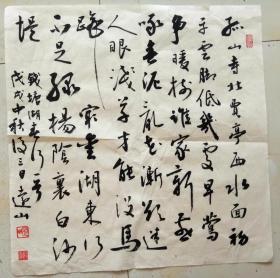 孤山寺北賈亭西水面初
平雲脚低幾處早鶯
争暖樹誰家新燕
啄春泥亂花漸欲迷
人眼淺草才能没馬
蹄最愛湖東行
不足绿楊陰裏白沙
堤 錢塘湖春行一首
戊戌中秋后三日遠山